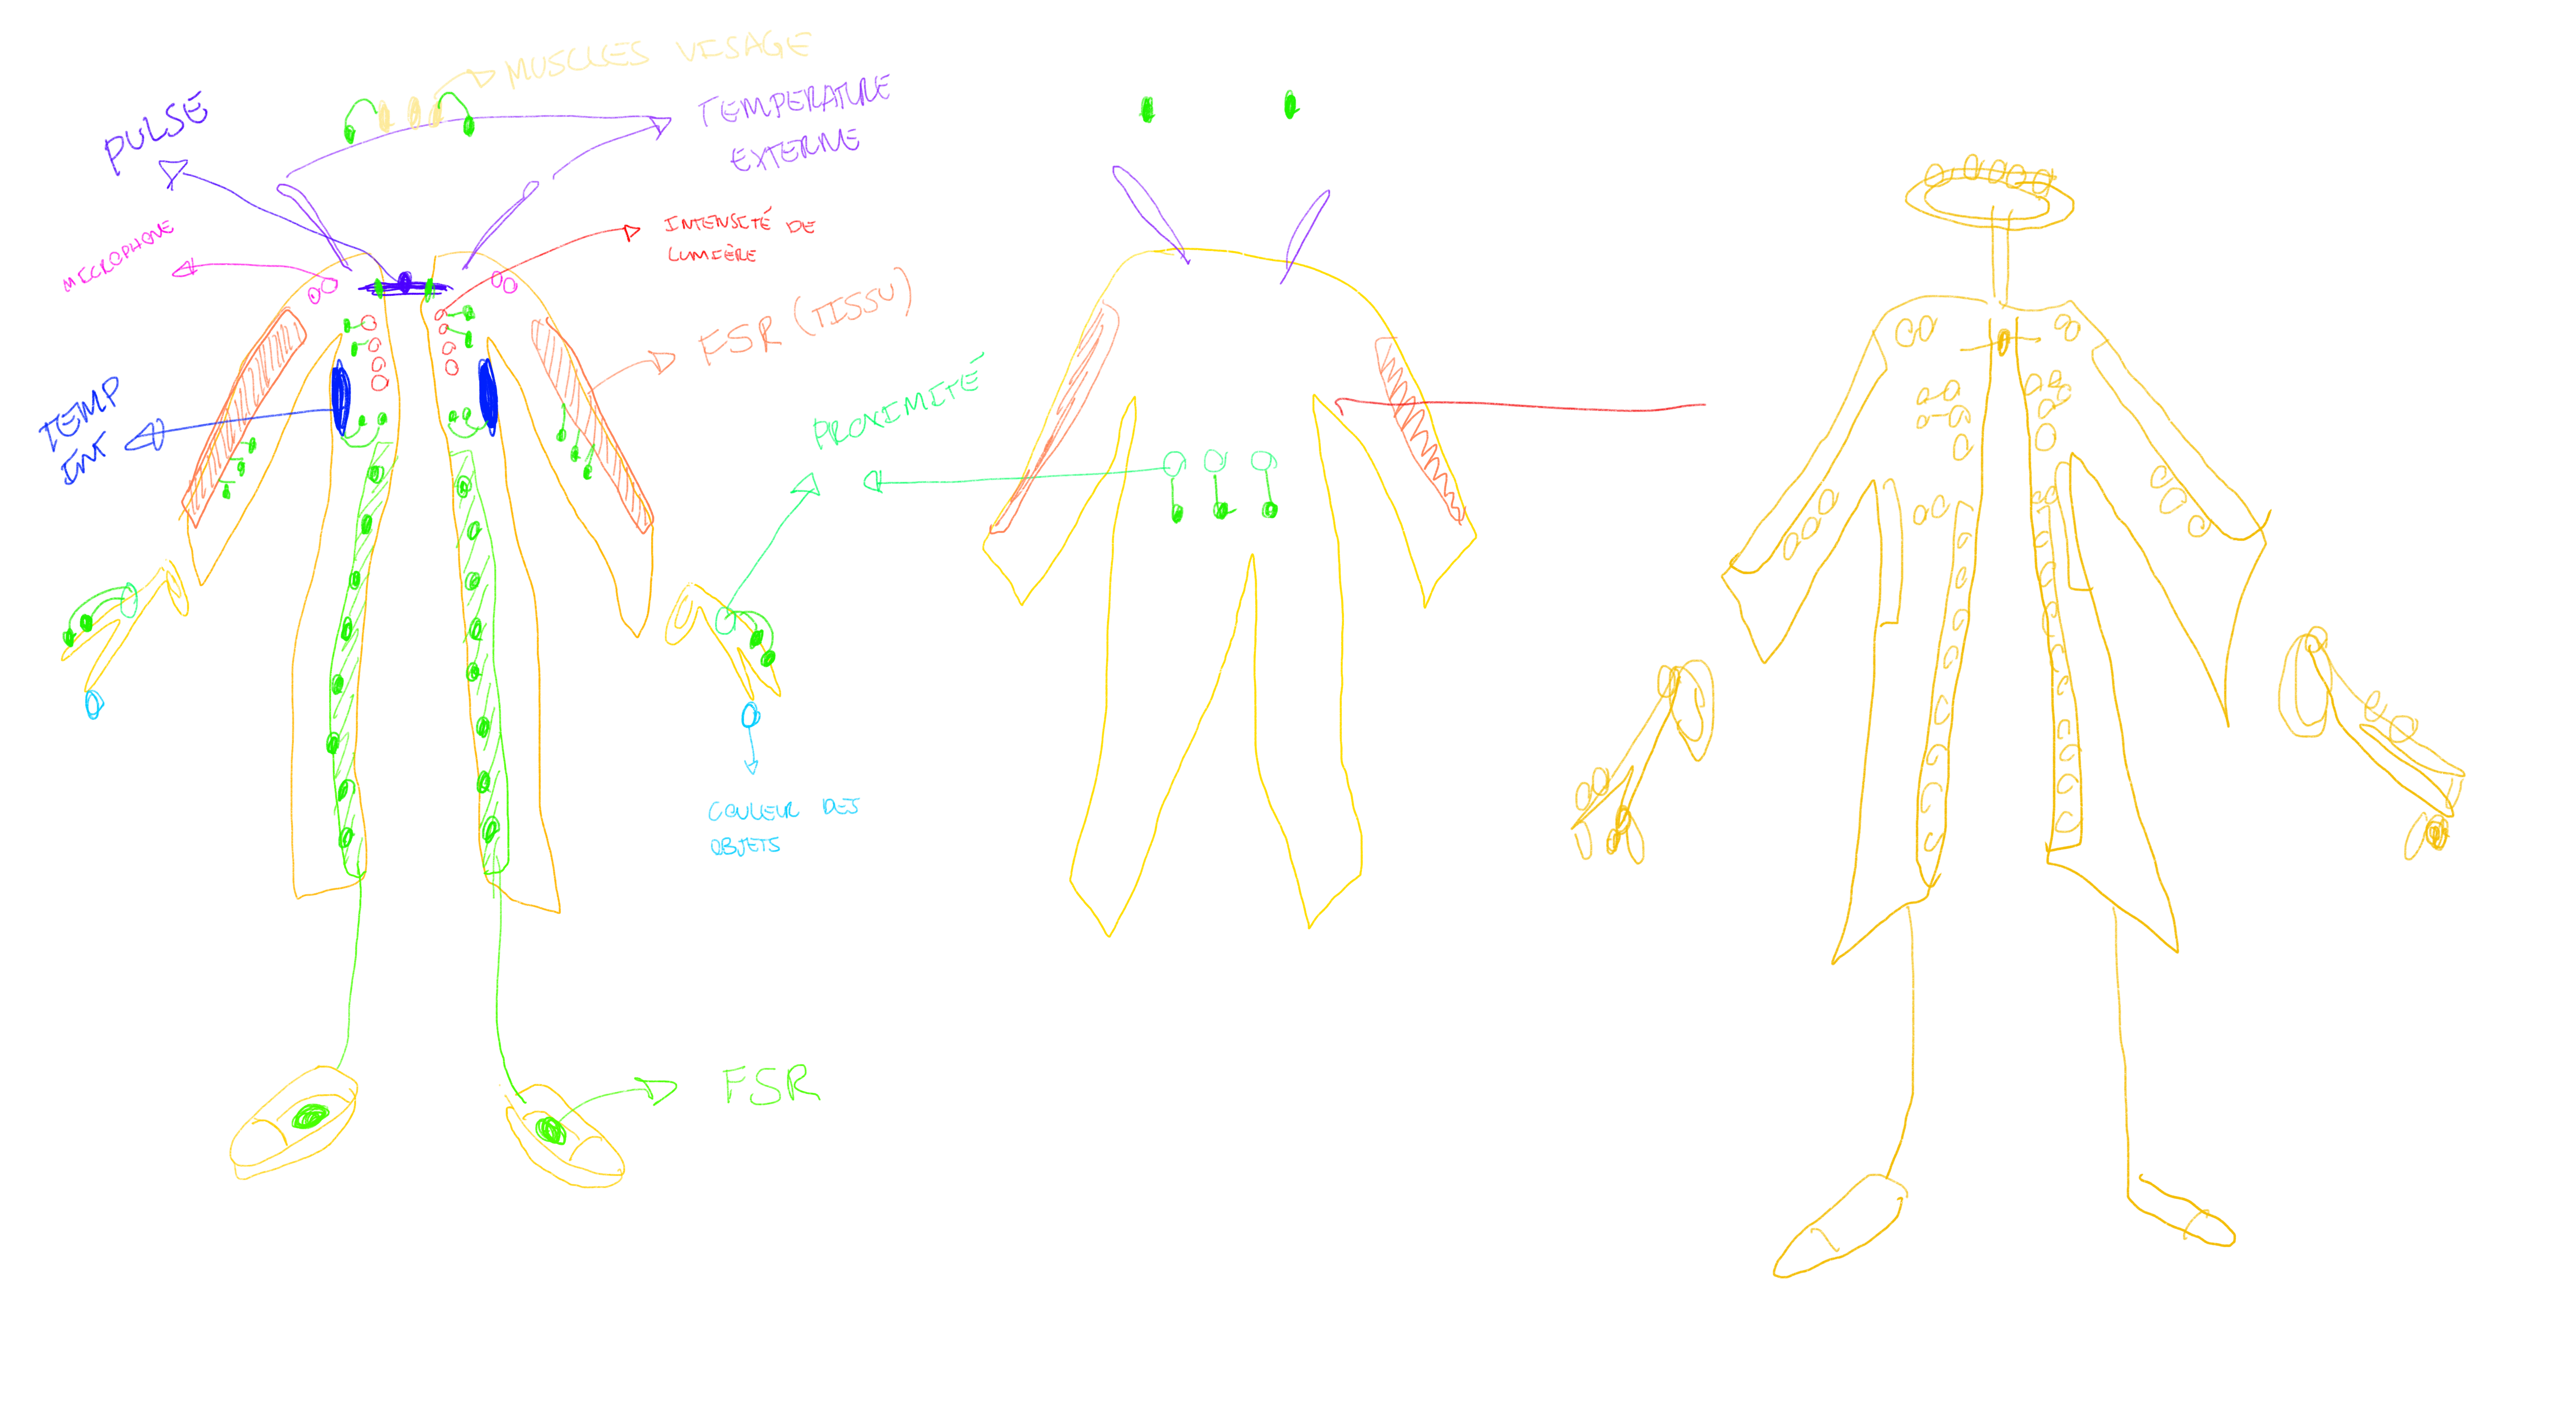 MUSCLES VISAGE
PULSE
TEMPERATURE
EXTERNE
MICROPHONE
INTENSITÉ DE
LUMIÈRE
FSR (TISSU)
TEMP
INT
PROXIMITÉ
COULEUR DES
OBJETS
FSR